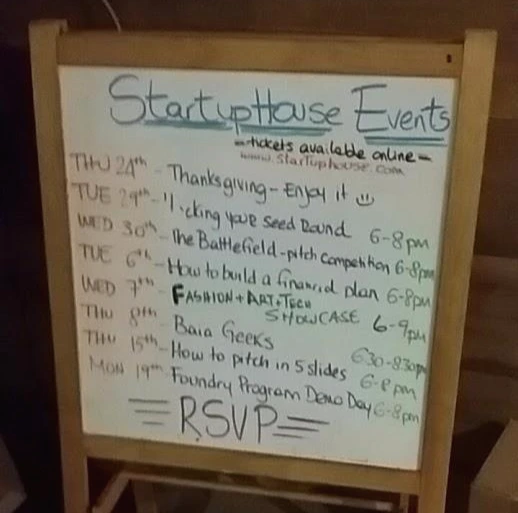 StartupHouse Events
-tickets available online-
www.StarTuphouse.com
THU 24th - Thanksgiving - Enjoy it ☺
TUE 29th - your Seed Round 6-8pm
WED 30th - The Battlefield - pitch competition 6-8pm
TUE 6th - How to build a financial plan 6-8pm
WED 7th - FASHION + ART + TECH SHOWCASE 6-9pm
THU 8th - Baia Geeks 630-830pm
THU 15th - How to pitch in 5 slides 6-8pm
MON 19th - Foundry Program Demo Day 6-8pm
RSVP